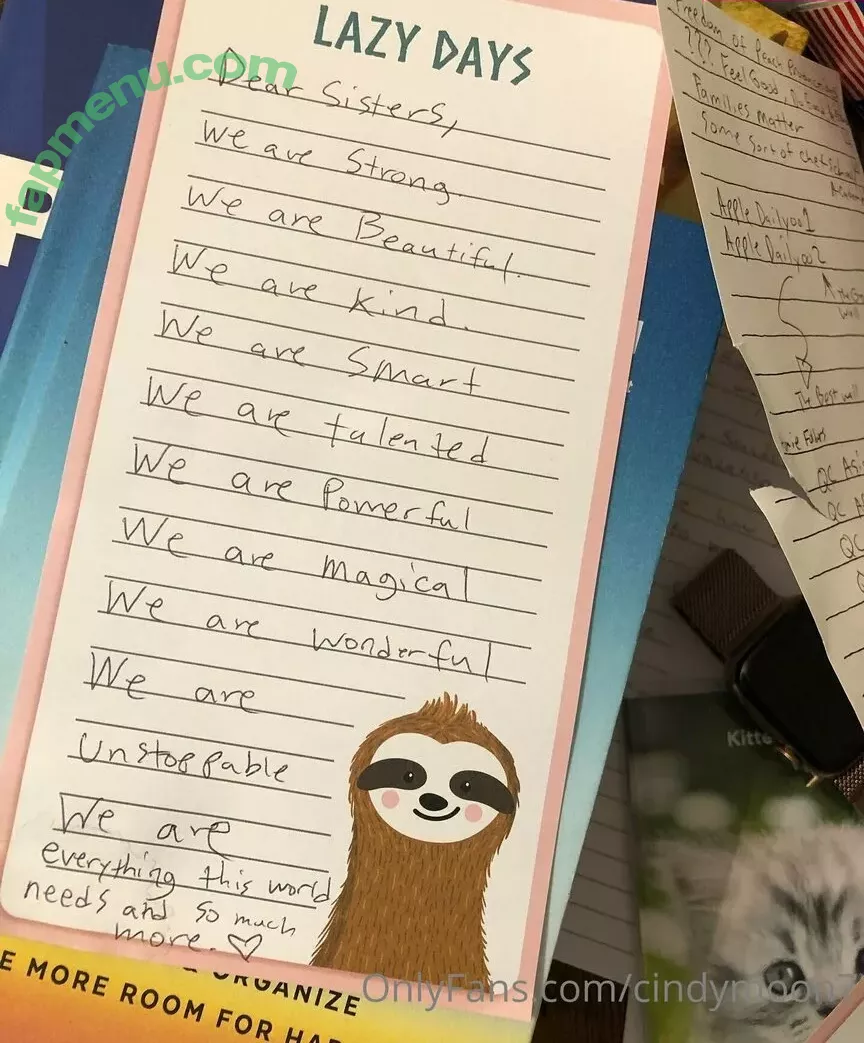 LAZY DAYS
Dear Sisters,
We are Strong
We are Beautiful.
We are kind.
We are Smart
We are talented
We are Powerful
We are magical
We are wonderful
We are
Unstoppable
We are
everything this world
needs and so much
more. ♡
ORGANIZE
E MORE ROOM FOR HA
Freedom of Peach
??? Feel Good, Do
Families matter
Some Sort of chef
Apple Daily001
Apple Daily002
The Best
QC
QC
QC
Kitte
fapmenu.com
OnlyFans.com/cindymoon7